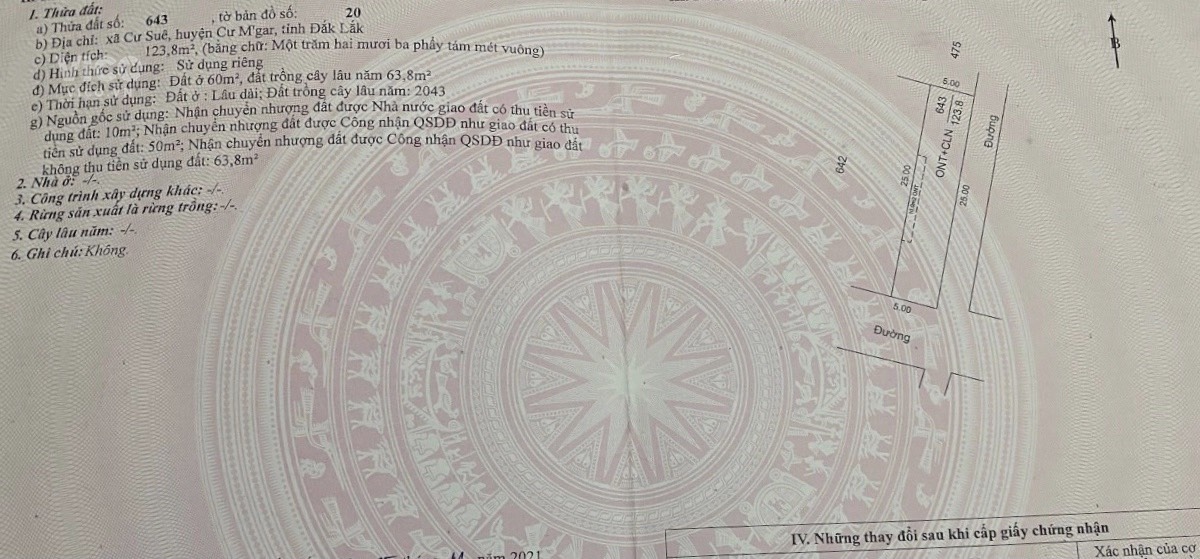 1. Thửa đất:
a) Thửa đất số: 643 , tờ bản đồ số: 20
b) Địa chỉ: xã Cư Suê, huyện Cư M'gar, tỉnh Đắk Lắk
c) Diện tích: 123,8m², (bằng chữ: Một trăm hai mươi ba phẩy tám mét vuông)
d) Hình thức sử dụng: Sử dụng riêng
đ) Mục đích sử dụng: Đất ở 60m², đất trồng cây lâu năm 63,8m²
e) Thời hạn sử dụng: Đất ở : Lâu dài; Đất trồng cây lâu năm: 2043
g) Nguồn gốc sử dụng: Nhận chuyển nhượng đất được Nhà nước giao đất có thu tiền sử
dụng đất: 10m²; Nhận chuyển nhượng đất được Công nhận QSDĐ như giao đất có thu
tiền sử dụng đất: 50m²; Nhận chuyển nhượng đất được Công nhận QSDĐ như giao đất
không thu tiền sử dụng đất: 63,8m²
2. Nhà ở: -/-.
3. Công trình xây dựng khác: -/-.
4. Rừng sản xuất là rừng trồng: -/-.
5. Cây lâu năm: -/-.
6. Ghi chú: Không.
B
475
5.00
643
ONT+CLN
123.8
Đường
642
25.00
25.00
5.00
Đường
IV. Những thay đổi sau khi cấp giấy chứng nhận
Xác nhận của cơ
năm 2021